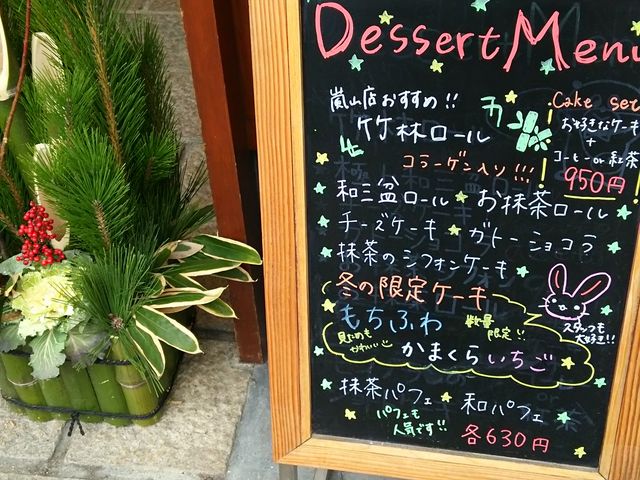 Dessert Menu
嵐山店おすすめ!!
竹林ロール
コラーゲン入り!!!
Cake set
お好きなケーキ
+
コーヒー or 紅茶
950円
和三盆ロール お抹茶ロール
チーズケーキ ガトーショコラ
抹茶のシフォンケーキ
冬の限定ケーキ
もちふわ
数量
限定!!
見ためも
かわいい
かまくらいちご
スタッフも
大好き!!
抹茶パフェ 和パフェ
パフェも
人気です!!
各630円